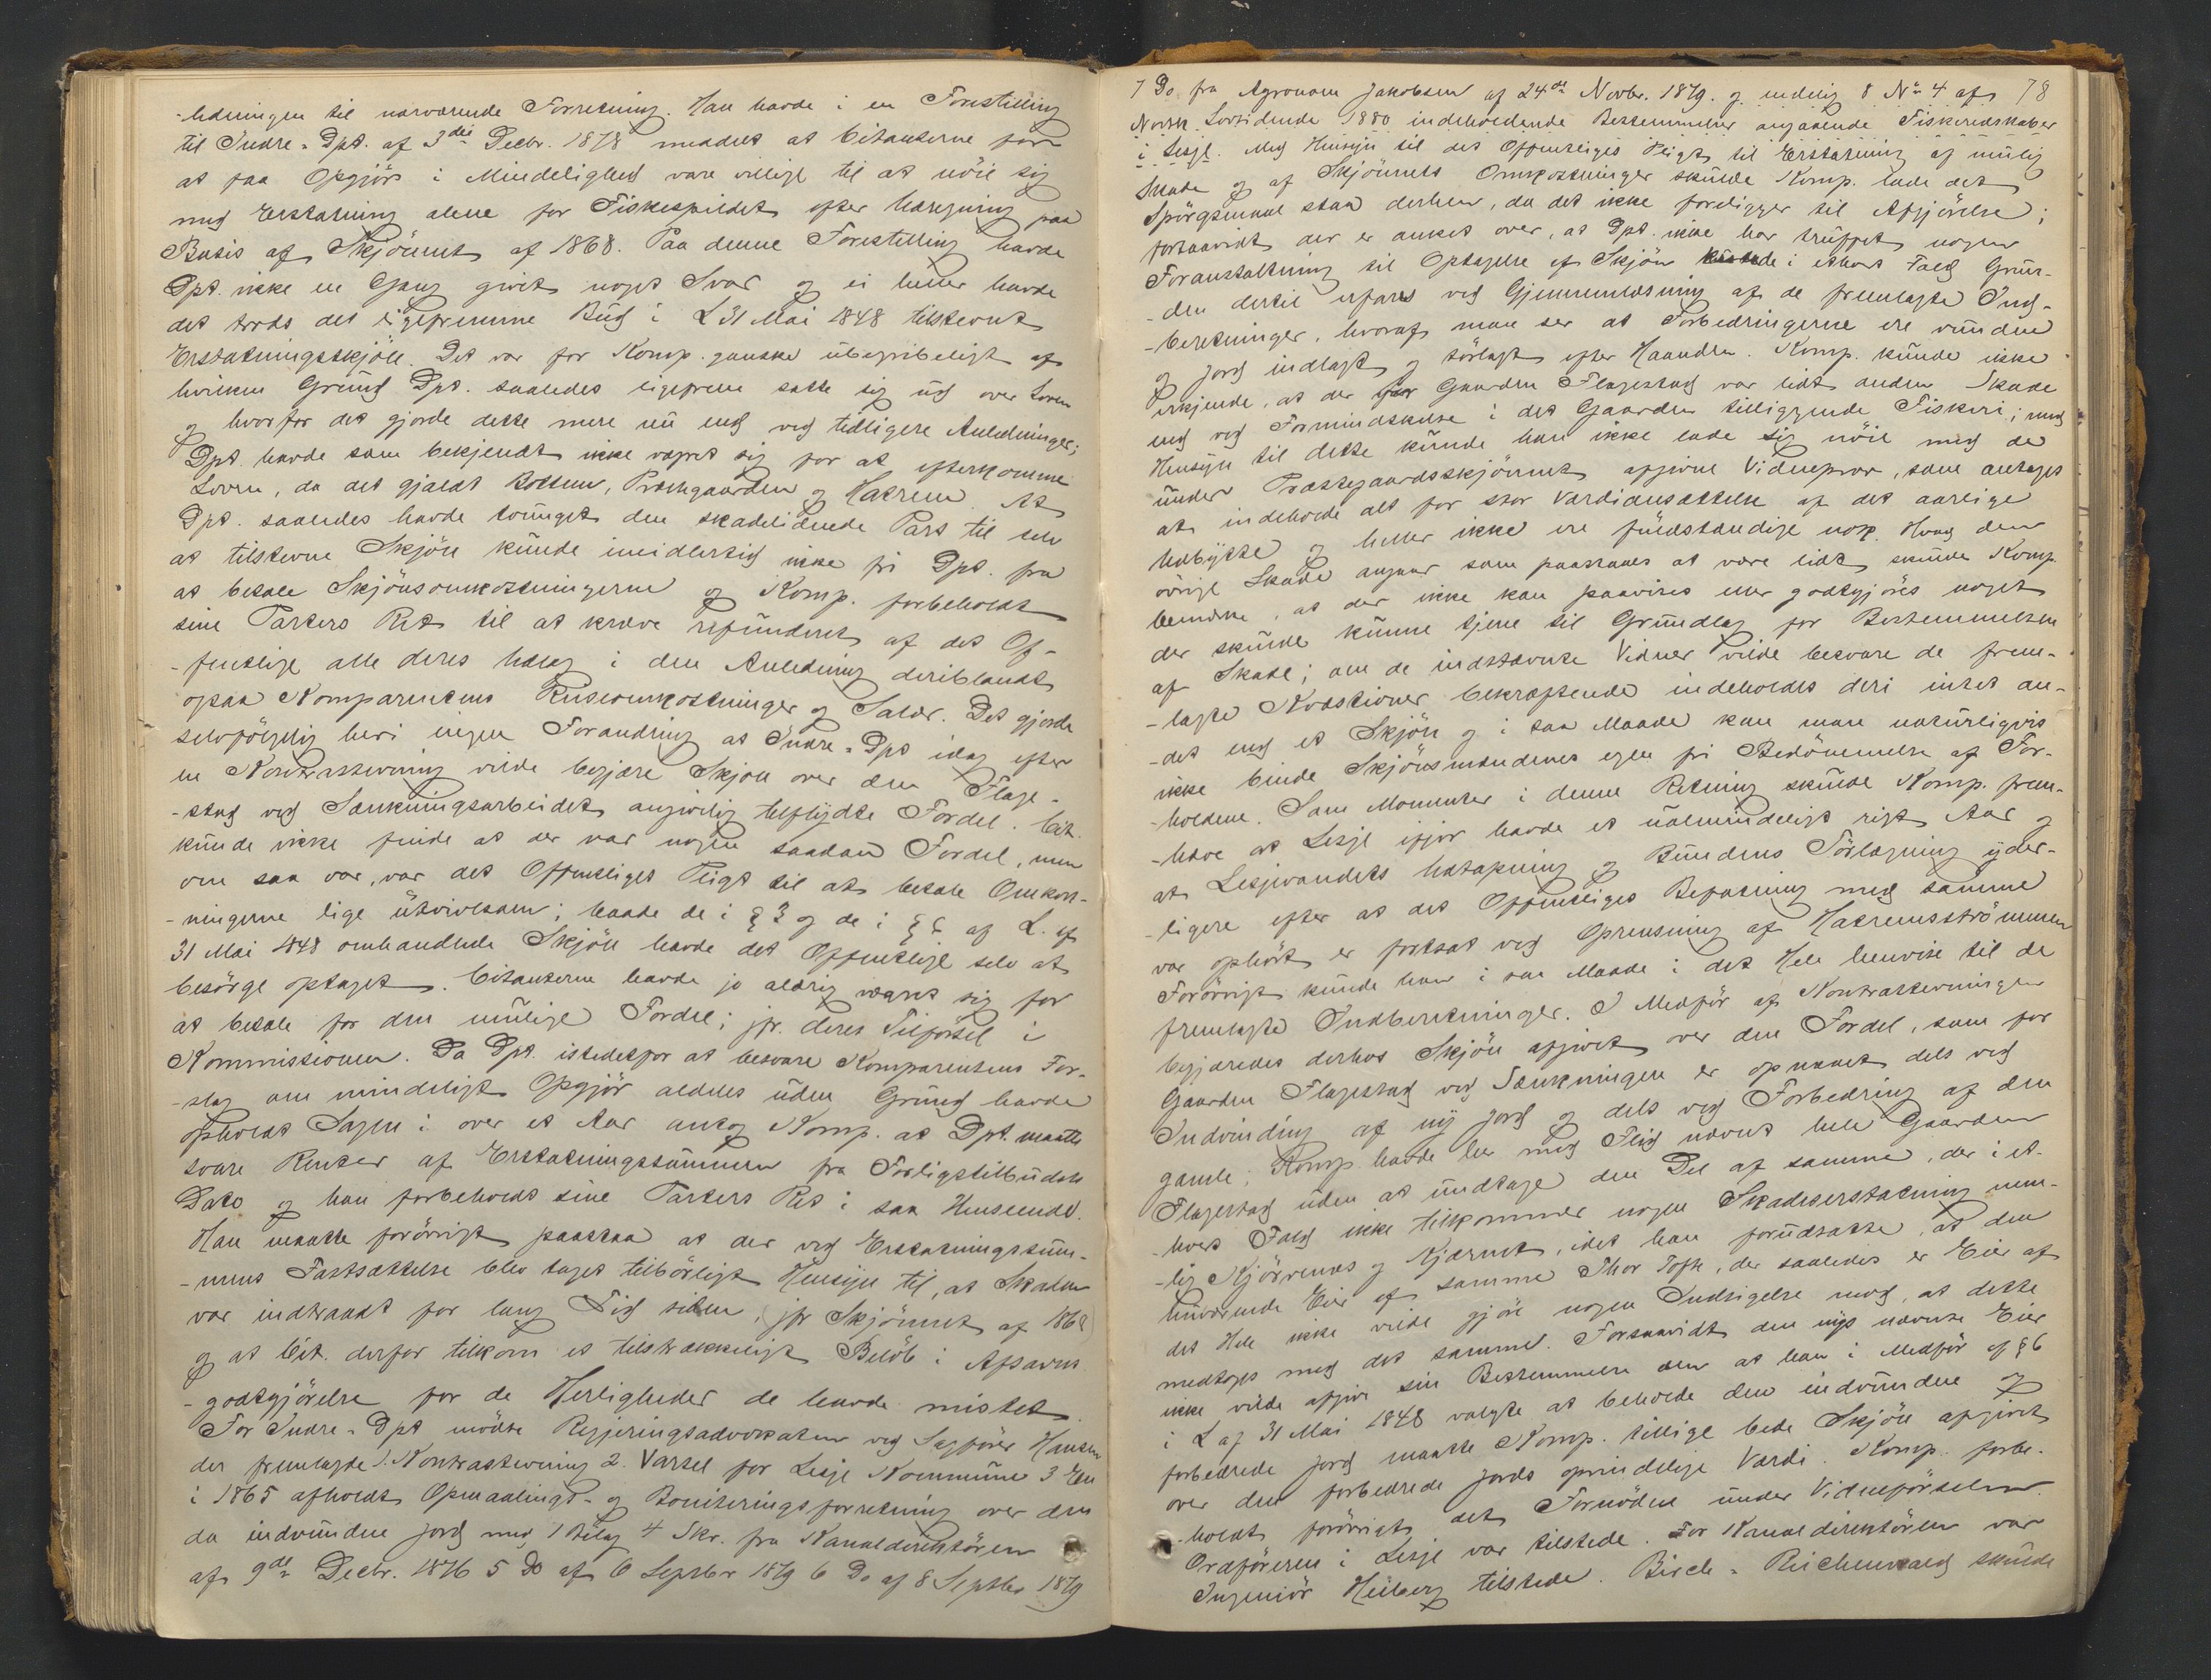 -ledningen til nærværende Forretning. Han havde i en Forestilling
til Indre-Dpt. af 3die Decbr. 1878 meddelt at Citanterne for
at faa Opgjör i Mindelighed vare villige til at nöie sig
med Erstatning alene for Fiskespildet efter Beregning paa
Basis af Skjönnet af 1868. Paa denne Forestilling havde
Dpt. ikke en Gang givet noget Svar og ei heller havde
det trods det ligefremme Bud i L 31 Mai 1848 tilstevnt
Erstatningsskjön. Det var for Komp. ganske ubegribeligt af
hvilken Grund Dpt. saaledes ligefrem satte sig ud over Loven
og hvorfor det gjorde dette mere nu end ved tidligere Anledninger;
Dpt. havde som bekjendt ikke vægret sig for at efterkomme
Loven, da det gjaldt Bottem, Præstegaarden og Hatrem. At
Dpt. saaledes havde tvunget den skadelidende Part til selv
at tilstevne Skjön kunde imidlertid ikke fri Dpt. fra
at betale Skjönsomkostningerne og Komp. forbeholdt
sine Parters Ret til at kræve refunderet af det Of-
-fentlige alle deres Udlæg i den Anledning deriblandt
ogsaa Komparentens Reiseomkostninger og Salær. Det gjorde
selvfölgelig heri ingen Forandring at Indre-Dpt idag efter
en Kontrastevning vilde begjære Skjön over den Flage-
-stad ved Sænkningsarbeidet angivelig tilflydte Fordel. Cit.
kunde ikke finde at der var nogen saadan Fordel, men
om saa var, var det Offentliges Pligt til at betale Omkost-
-ningerne lige utvivlsom; baade de i § 2 og de i § 6 af L. af
31 Mai 1848 omhandlede Skjön havde det Offentlige selv at
besörge optaget. Citanterne havde jo aldrig vægret sig for
at betale for den mulige Fordel; jfr. deres Tilförsel i
Kommissionen. Da Dpt. istedetfor at besvare Komparentens For-
-slag om mindeligt Opgjör aldeles uden Grund havde
opholdt Sagen i over et Aar antog Komp. at Dpt. maatte
svare Renter af Erstatningssummen fra Forligstilbudets
Dato og han forbeholdt sine Parters Ret i saa Henseende.
Han maatte forövrigt paastaa at der ved Erstatningssum-
-mens Fastsættelse blev taget tilbörligt Hensyn til, at Skaden
var indtraadt for lang Tid siden, (jfr Skjönnet af 1868)
og at Cit. derfor tilkom et tilstrækkeligt Belöb i Afsavns-
-godtgjörelse for de Herligheder de havde mistet.
For Indre-Dpt mödte Regjeringsadvokaten ved Sagförer Hansen
der fremlagde 1. Kontrastevning 2. Varsel for Lesje Kommune 3 En
i 1865 afholdt Opmaalings- og Boniteringsforretning over den
da indvundne Jord med 1 Bilag 4 Skr. fra Kanaldirektören
af 9de Decbr. 1876 5 Do af 6 Septbr 1879 6 Do af 8 Septbr 1879
78
7 Do fra Agronom Jakobsen af 24de Novbr. 1879. og endelig 8 No 4 af
Norsk Lovtidende 1880 indeholdende Bestemmelser angaaende Fiskeredskaber
i Lesje. Med Hensyn til det Offentliges Pligt til Erstatning af mulig
Skade og af Skjönnets Omkostninger skulde Komp. lade det
Spörgsmaal staa derhen, da det ikke foreligger til Afgjörelse;
forsaavidt der er anket over, at Dpt. ikke har truffet nogen
Foranstaltning til Optagelse af Skjön i ethvert Fald Grun-
-den dertil erfares ved Gjennemlæsning af de fremlagte Ind-
-beretninger, hvoraf man ser at Forbedringerne ere vundne
og Jord indlagt og törlagt efter Haanden. Komp. kunde ikke
erkjende, at der for Gaarden Flagestad var lidt anden Skade
end ved Formindskelse i det Gaarden tilliggende Fiskeri; med
Hensyn til dette kunde han ikke lade sig nöie med de
under Præstegaardsskjönnet afgivne Vidneprov, som antages
at indeholde alt for stor Værdiansættelse af det aarlige
Udbytte og heller ikke ere fuldstændige nok. Hvad den
övrige Skade angaar som paastaaes at være lidt, skulde Komp.
bemærke, at der ikke kan paavises eller godtgjöres noget
der skulde kunne tjene til Grundlag for Bestemmelsen
af Skade; om de indstævnte Vidner vilde besvare de frem-
-lagte Kvæstioner bekræftende indeholdes deri intet an-
-det end et Skjön og i saa Maade kan man naturligvis
ikke binde Skjönsmændenes egen fri Bedömmelse af For-
-holdene. Som Momenter i denne Retning skulde Komp. frem-
-hæve at Lesje ifjor havde et ualmindeligt rigt Aar og
at Lesjevandets Udtapning og Bundens Törlægning yder-
-ligere efter at det Offentliges Befatning med samme
var ophört er fortsat ved Oprensning af Hatremsströmmen
Forövrigt kunde han i saa Maade i det Hele henvise til de
fremlagte Indberetninger. I Medför af Kontrastevningen
begjæredes derhos Skjön afgivet over den Fordel, som for
Gaarden Flagestad ved Sænkningen er opnaaet dels ved
Indvinding af ny Jord og dels ved Forbedring af den
gamle; Komp. havde her med Flid nævnt hele Gaarden
Flagestad uden at undtage den Del af samme, der i et-
-hvert Fald ikke tilkommer nogen Skadeserstatning nem-
-lig Kjörrends og Kjærnet, idet han forudsatte, at den
nuværende Eier af samme Thor Toft, der saaledes er Eier af
det Hele ikke vilde gjöre nogen Indsigelse mod, at dette
medtoges med det samme. Forsaavidt den nys nævnte Eier
ikke vilde afgive sin Bestemmelse om at han i Medför af § 6
i L af 31 Mai 1848 valgte at beholde den indvundne og
forbedrede Jord maatte Komp. tillige bede Skjön afgivet
over den forbedrede Jords oprindelige Værdi. Komp. forbe-
-holdt forövrigt det Fornödne under Vidneförselen.
Ordföreren i Lesje var tilstede. For Kanaldirektören var
Ingeniör Heiberg tilstede. Birch-Reichenwald skulde